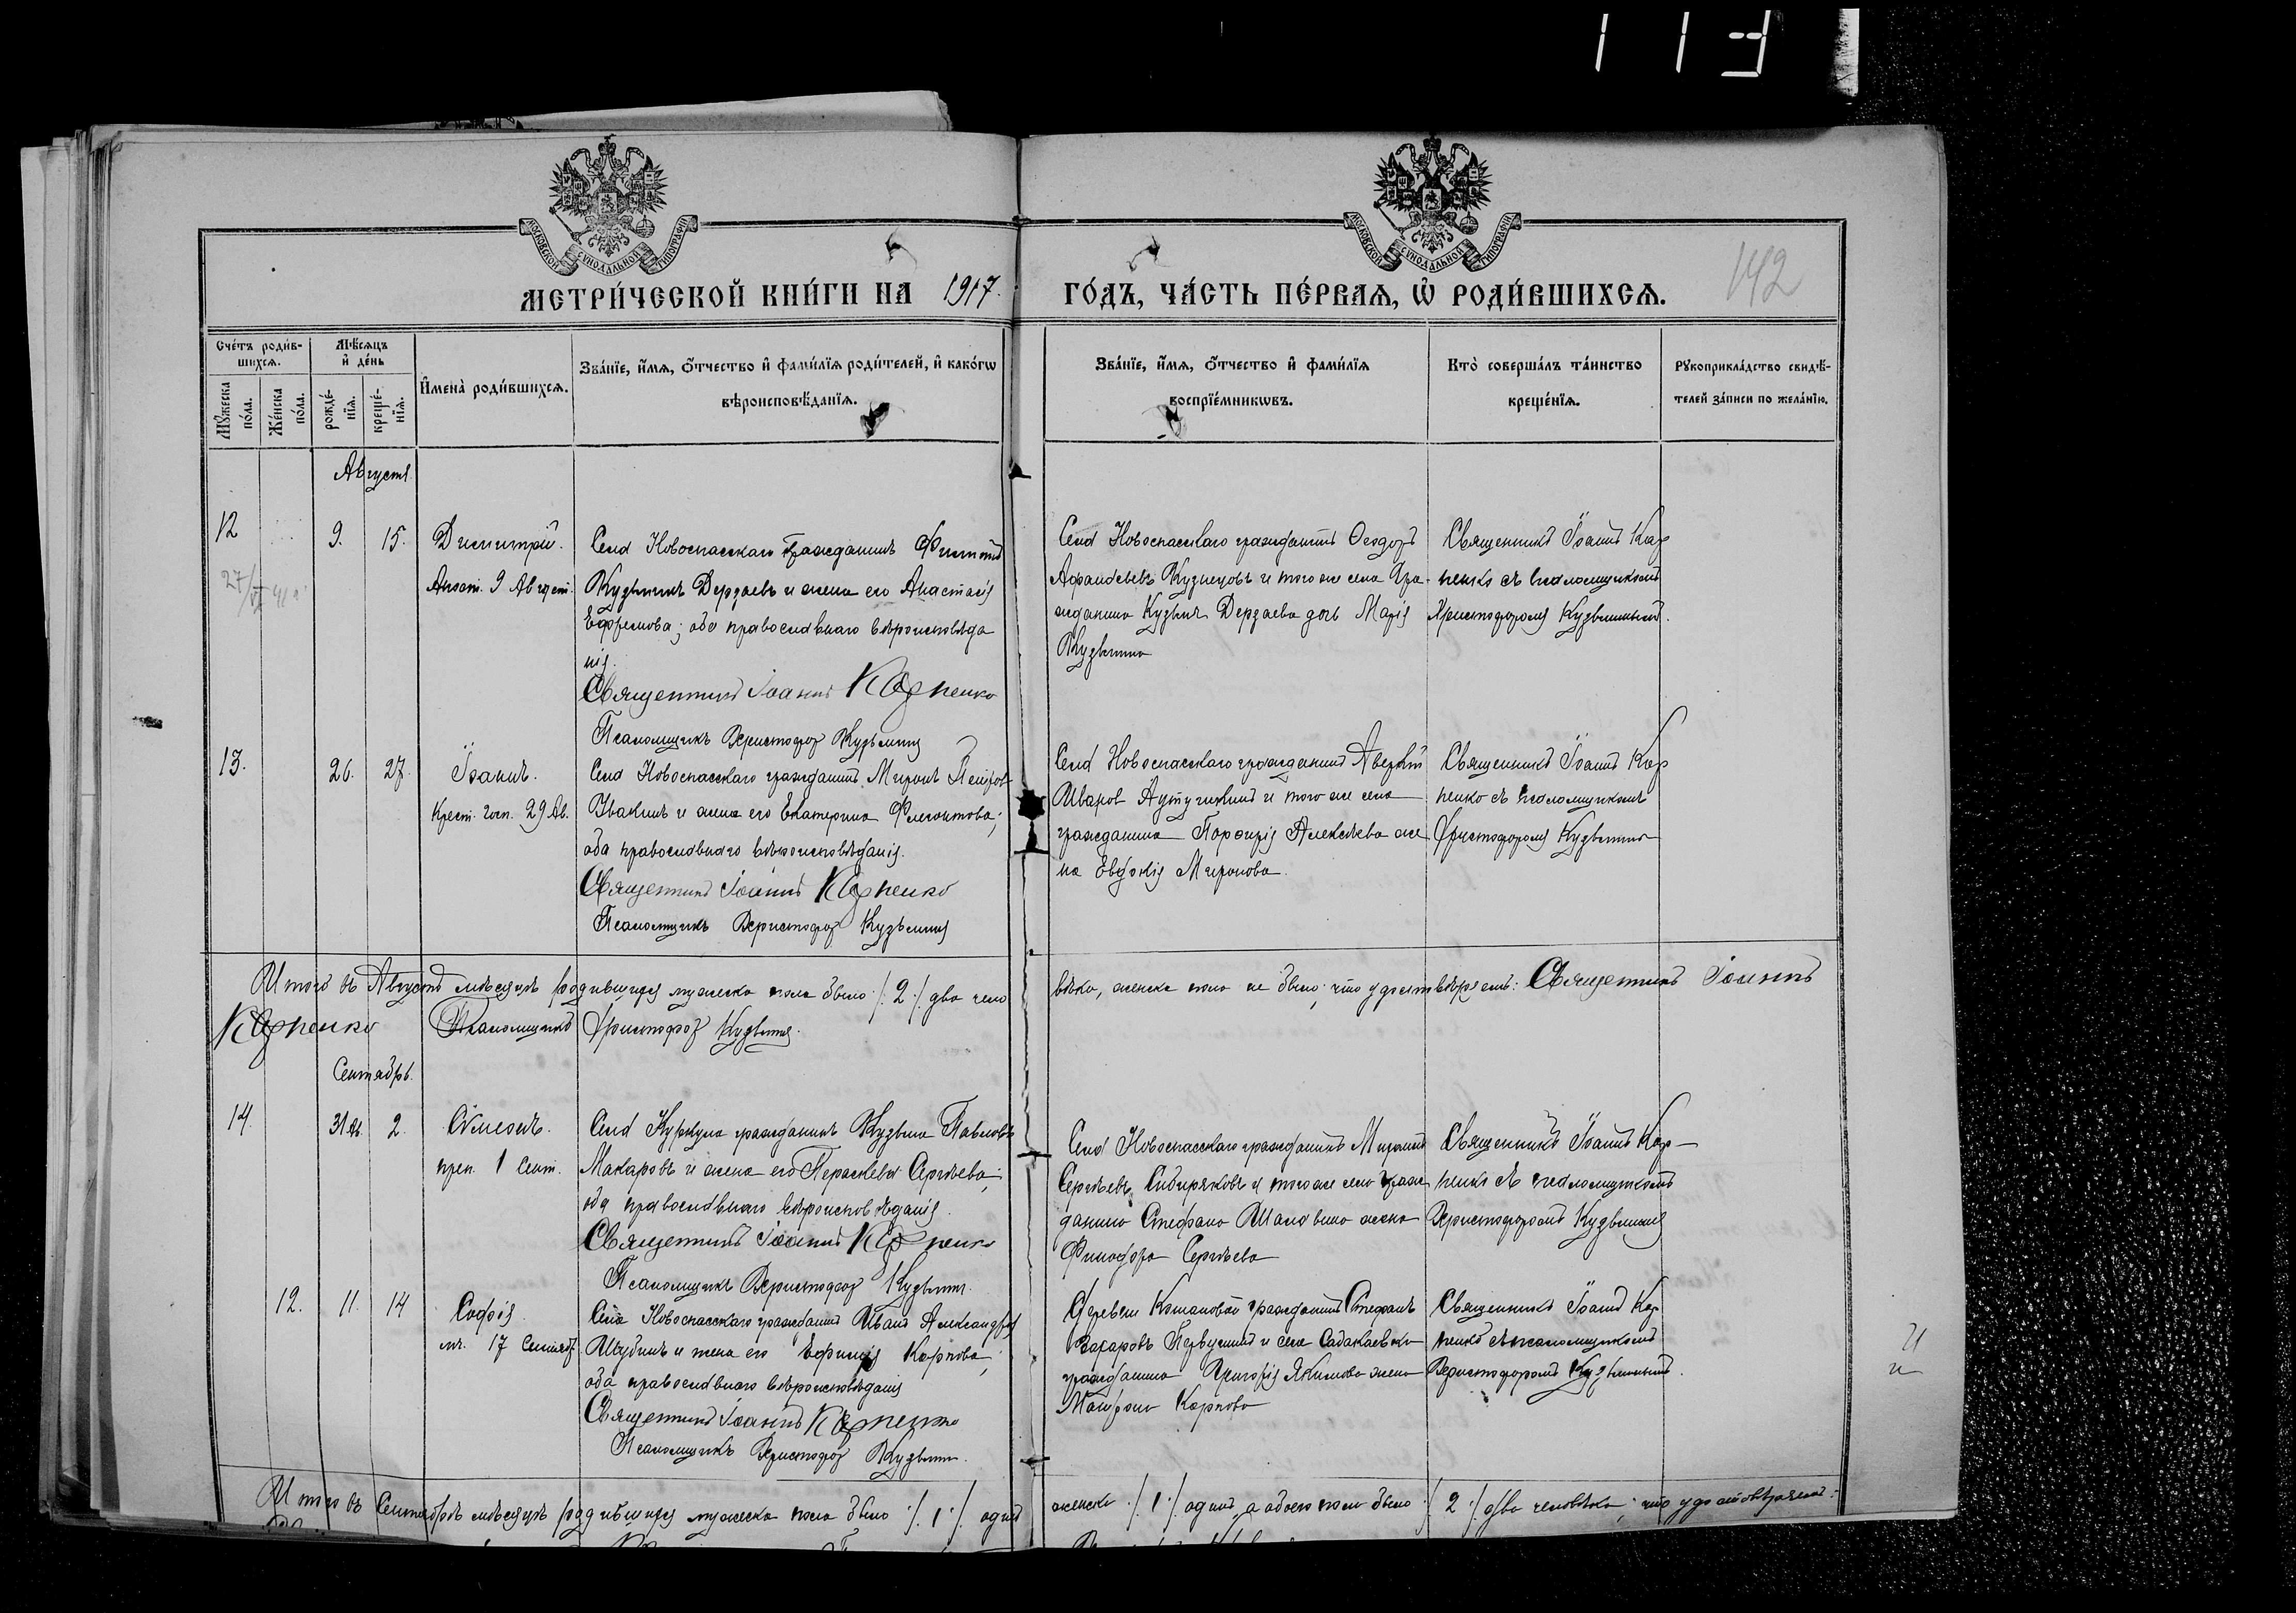 113
МОСКОВСКОЙ СѴНОДАЛЬНОЙ ТИПОГРАФІИ
МОСКОВСКОЙ СѴНОДАЛЬНОЙ ТИПОГРАФІИ
142
МЕТРИ́ЧЕСКОЙ КНИ́ГИ НА 1917. ГО́ДЪ, ЧА́СТЬ ПЕ́РВАЯ, Ѡ РОДИ́ВШИХСЯ.
Сче́тъ роди́в-
шихся.
Мѣ́сяцъ
и де́нь
Мꙋ́жеска по́ла.
Же́нска по́ла.
рожде́-
нїя.
креще́-
нїя.
И҆мена̀ роди́вшихся.
Зва́нїе, и҆́мя, ѻ҆́тчество и҆ фами́лїя роди́телей, и҆ како́гѡ
вѣроисповѣ́данїя.
Зва́нїе, и҆́мя, ѻ҆́тчество и҆ фами́лїя
воспрїе́мникѡвъ.
Кто̀ соверша́лъ та́инство
креще́нїя.
Рꙋкоприкла́дство свидѣ́-
телей за́писи по жела́нїю.
Августъ
12
9.
15.
Димитрій.
Апост. 9 Август.
Села Новоспасскаго гражданинъ
Кузьминъ Дерзаевъ и жена его Анастасія
Ефремова; оба православнаго вѣроисповѣда
нія.
Священникъ Іоаннъ Карпенко
Псаломщикъ Христофоръ Кузьминъ
Села Новоспасскаго гражданинъ Ѳеодоръ
Афанасьевъ Кузнецовъ и того же села гра-
жданина Кузьмы Дерзаева дочь Марія
Кузьмина
Священникъ Іоаннъ Кар
пенко съ псаломщикомъ
Христофоромъ Кузьминымъ.
13.
26.
27.
Іоаннъ.
Крест. Госп. 29 Ав.
Села Новоспасскаго гражданинъ Миронъ Петровъ
Ивакинъ и жена его Екатерина Флегонтова;
оба православнаго вѣроисповѣданія.
Священникъ Іоаннъ Карпенко
Псаломщикъ Христофоръ Кузьминъ
Села Новоспасскаго гражданинъ
Иваровъ и того же села
гражданина Порфирія Алексѣева же
на Евдокія Миронова.
Священникъ Іоаннъ Кар
пенко съ псаломщикомъ
Христофоромъ Кузьминымъ
Итого въ Августѣ мѣсяцѣ родившихся мужеска пола было /. 2 ./ два чело
вѣка, женска пола не было; что удостовѣряемъ: Священникъ Іоаннъ
Карпенко Псаломщикъ Христофоръ Кузьминъ.
Сентябрь.
14.
31 Ав.
2.
Сѵмеонъ.
преп. 1 Сент.
Села гражданинъ Кузьма Павловъ
Макаровъ и жена его Параскева Сергѣева;
оба православнаго вѣроисповѣданія.
Священникъ Іоаннъ Карпенко
Псаломщикъ Христофоръ Кузьминъ.
Села Новоспасскаго гражданинъ
Сергѣевъ Сибиряковъ и того же села граж
данина Стефана жена
Сергѣева
Священникъ Іоаннъ Кар-
пенко съ псаломщикомъ
Христофоромъ Кузьминымъ
12.
11.
14
Софія.
мч. 17 Сентяб.
Села Новоспасскаго гражданинъ Иванъ Александровъ
Шубинъ и жена его Ефимія Карпова;
оба православнаго вѣроисповѣданія
Священникъ Іоаннъ Карпенко
Псаломщикъ Христофоръ Кузьминъ.
Деревни гражданинъ Стефанъ
Захаровъ и села
гражданина Григорія Якимова жена
Матрона Карпова
Священникъ Іоаннъ Кар
пенко съ псаломщикомъ
Христофоромъ Кузьминымъ.
Итого въ Сентябрѣ мѣсяцѣ родившихся мужеска пола было /. 1 ./ одинъ
женска /. 1 ./ одинъ, а обоего пола было /. 2 ./ два человѣка; что удостовѣряемъ: